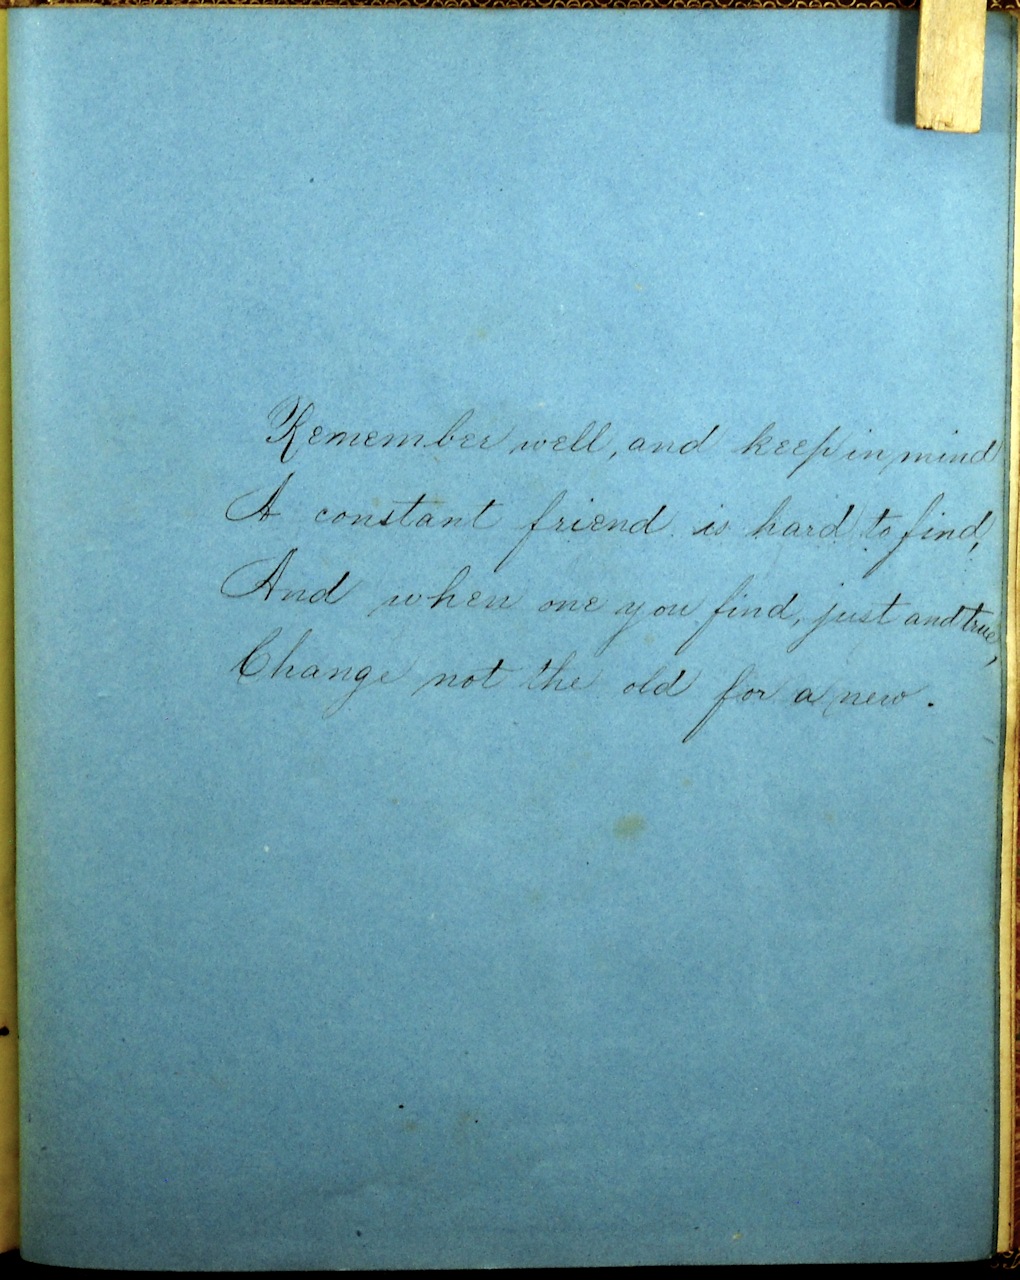 Remember well, and keep in mind
A constant friend is hard to find,
And when one you find, just and true,
Change not the old for a new.